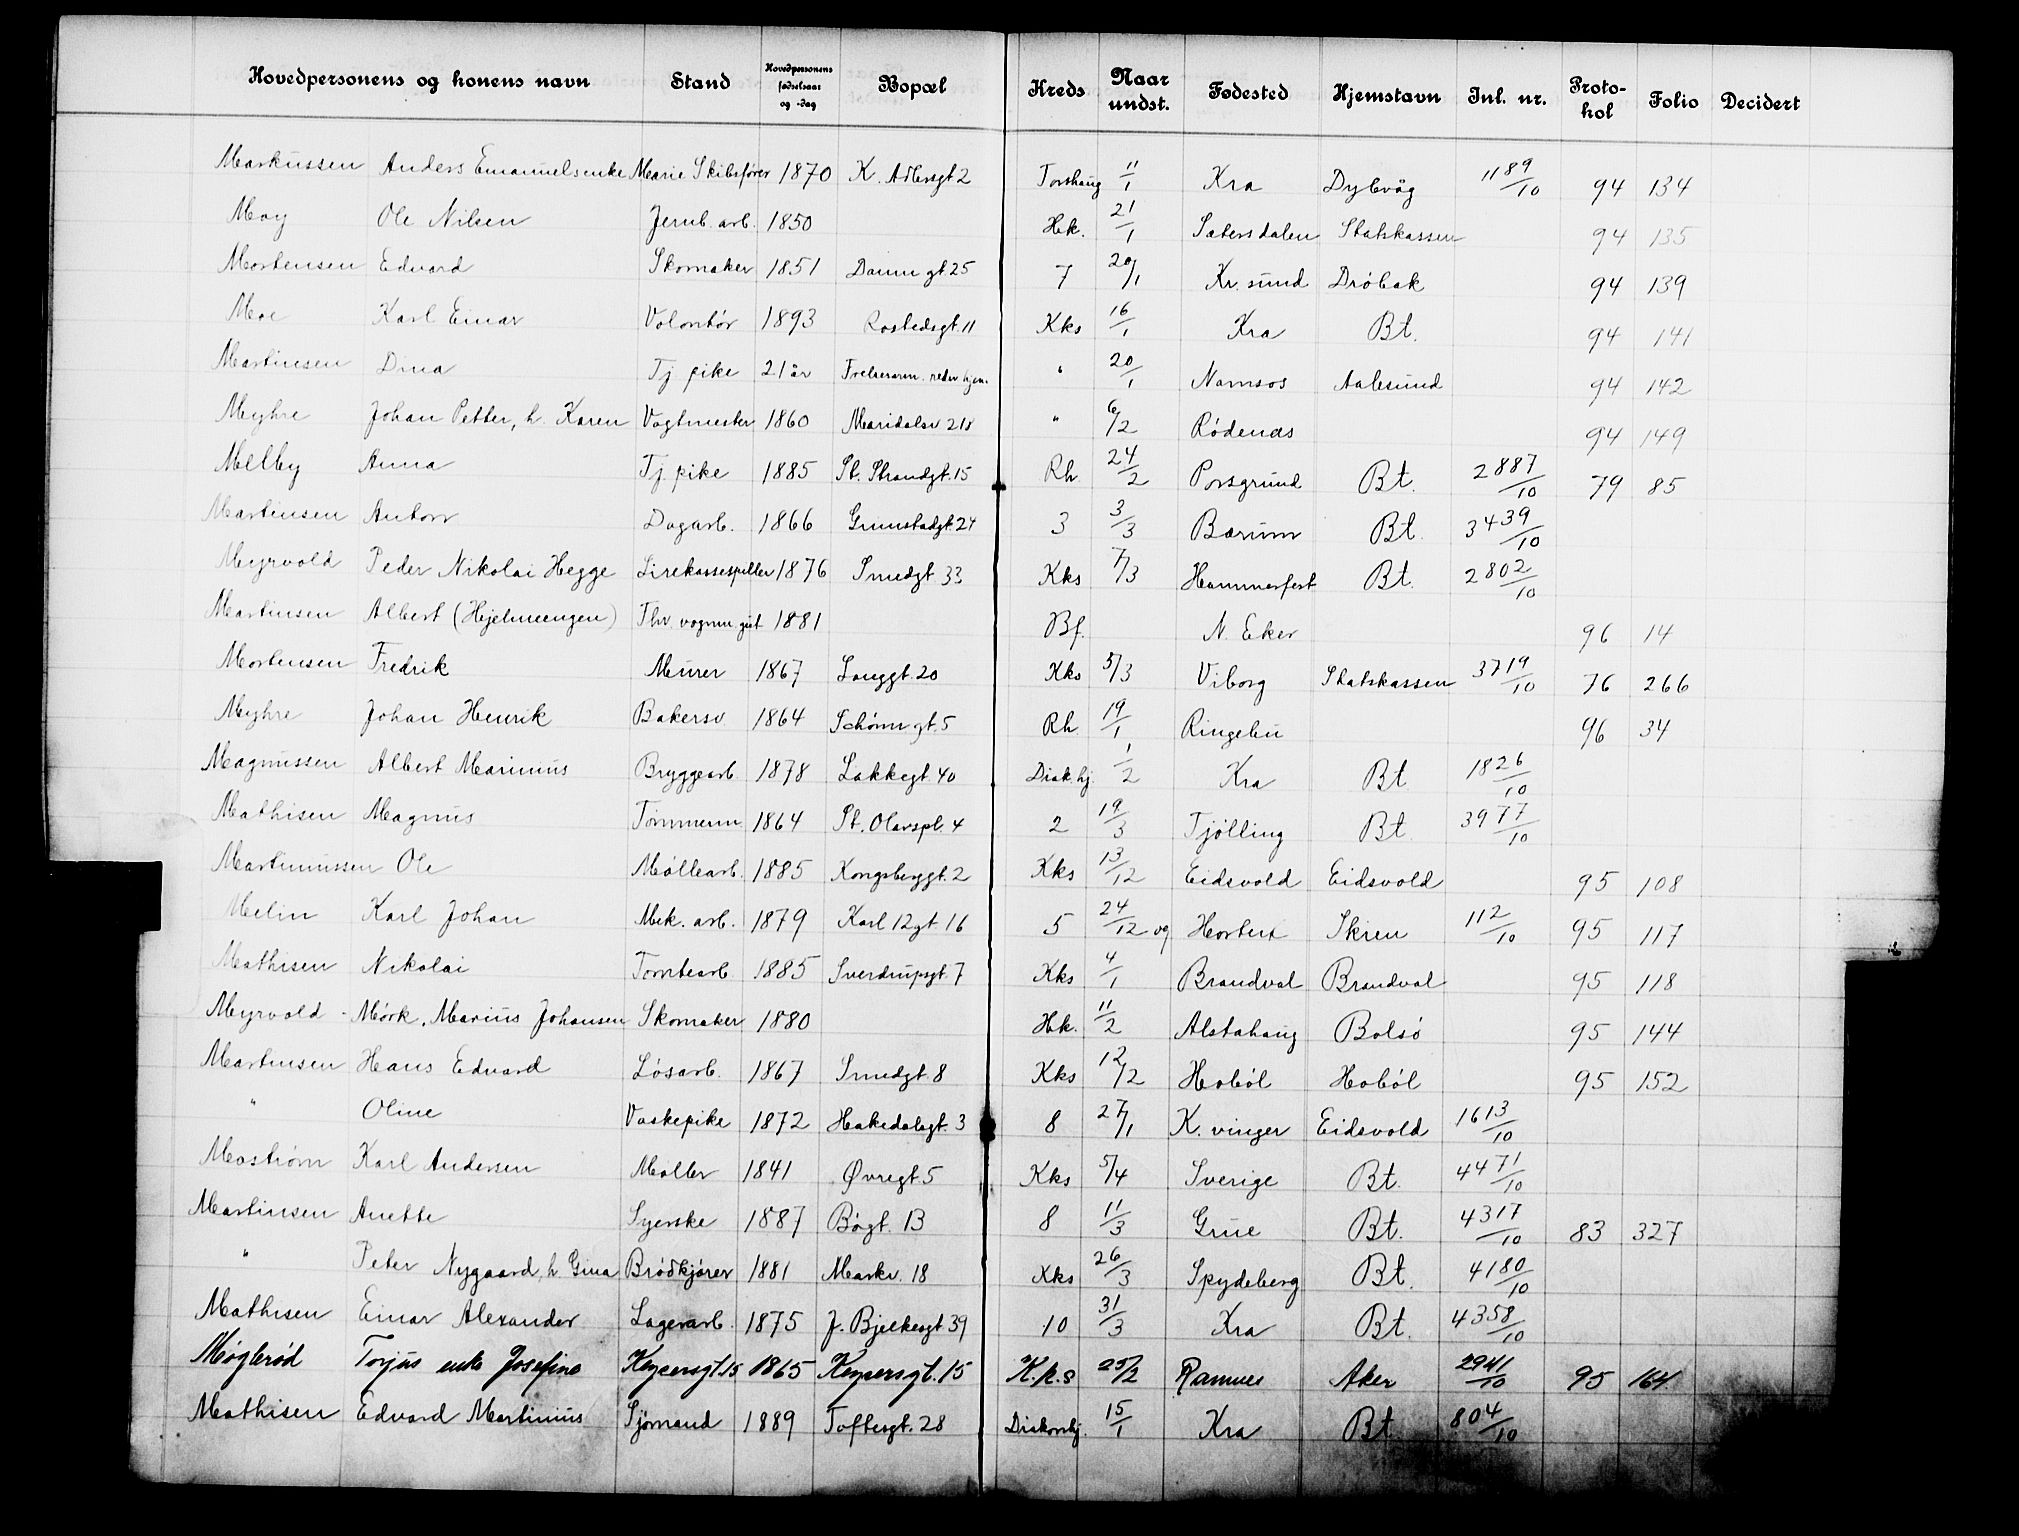 Hovedpersonens og konens navn Stand Hovedpersonens fødselsaar og -dag Bopæl Kreds Naar undst. Fødested Hjemstavn Inl. nr. Proto-hol Folio Decidert
Markussen Anders Emanuels enke Marie Skibsfører 1870 K. Adlersgt 2 Torshaug 11/1 Kra Dybvåg 1189/10 94 134
Moy Ole Nilsen Jernb. arb. 1850 Hk. 21/1 Sætersdalen Statskassen 94 135
Mortensen Edvard Skomaker 1851 gt 25 7 20/1 Kr. sund Drøbak 94 139
Moe Karl Einar Volontør 1893 Rostedsgt. 11 Kks 16/1 Kra Bt. 94 141
Martinsen Dina Tj. pike 21 år Frelsesarm. redn. hjem. " 20/1 Namsos Aalesund 94 142
Myhre Johan Petter, h. Karen Vagtmester 1860 Maridalsv 218 " 6/2 Rødenes 94 149
Melby Anna Tj. pike 1885 St. Strandgt. 15 Rh 24/2 Porsgrund Bt. 2887/10 79 85
Martinsen Anton Dagarb. 1866 Grimstadgt. 24 3 3/3 Bærum Bt. 3439/10
Myrvold Peder Nikolai Hegge Lirekassespiller 1876 Smedgt. 33 Kks 7/3 Hammerfest Bt. 2802/10
Martinsen Albert (Hjelmeengen) Thv. vognm. gut 1881 Bf. N. Eker 96 14
Mortensen Fredrik Murer 1867 Langgt. 20 Kks 5/3 Viborg Statskassen 3719/10 76 266
Myhre Johan Henrik Bakersv. 1864 Schønn gt. 5 Rh 19/1 Ringebu 96 34
Magnussen Albert Marinius Bryggearb 1878 Lakkegt. 40 Diak. hj. 1/2 Kra Bt 1826/10
Mathisen Magnus Tømmerm. 1864 St. Olavspl. 4 2 19/3 Tjølling Bt. 3977/10
Martinussen Ole Møllearb. 1885 Kongsberggt. 2 Kks 13/12 Eidsvold Eidsvold 95 108
Melin Karl Johan Mek. arb. 1879 Karl 12 gt 16 5 24/12 09 Horten Skien 112/10 95 117
Mathisen Nikolai Tomtearb. 1885 Sverdrupsgt. 7 Kks 4/1 Brandval Brandval 95 118
Myrvold - Mørk, Marius Johansen Skomaker 1880 Hk. 11/2 Alstahaug Bolsø 95 144
Martinsen Hans Edvard Løsarb. 1867 Smedgt. 8 Kks 12/2 Hobøl Hobøl 95 152
" Oline Vaskepike 1872 Hakedalsgt. 3 8 27/1 K. vinger Eidsvold 1613/10
Mostrøm Karl Andersen Møller 1841 Øvregt. 5 Kks 5/4 Sverige Bt. 4471/10
Martinsen Anette Syerske 1887 Bøgt. 13 8 11/3 Grue Bt. 4317/10 83 327
" Peter Nygaard, h. Gina Brødkjører 1881 Markv. 18 Kks 26/3 Spydeberg Bt. 4180/10
Mathisen Einar Alexander Lagerarb. 1875 J. Bjelkesgt 39 10 31/3 Kra Bt. 4358/10
Møglerød Torjus enke Josefine Keysersgt. 15 1865 Keysersgt. 15 K.k.s 25/2 Ramnes Aker 2941/10 95 164
Mathisen Edvard Martinius Sjømand 1889 Toftesgt. 28 Diakonhj. 15/1 Kra Bt. 804/10